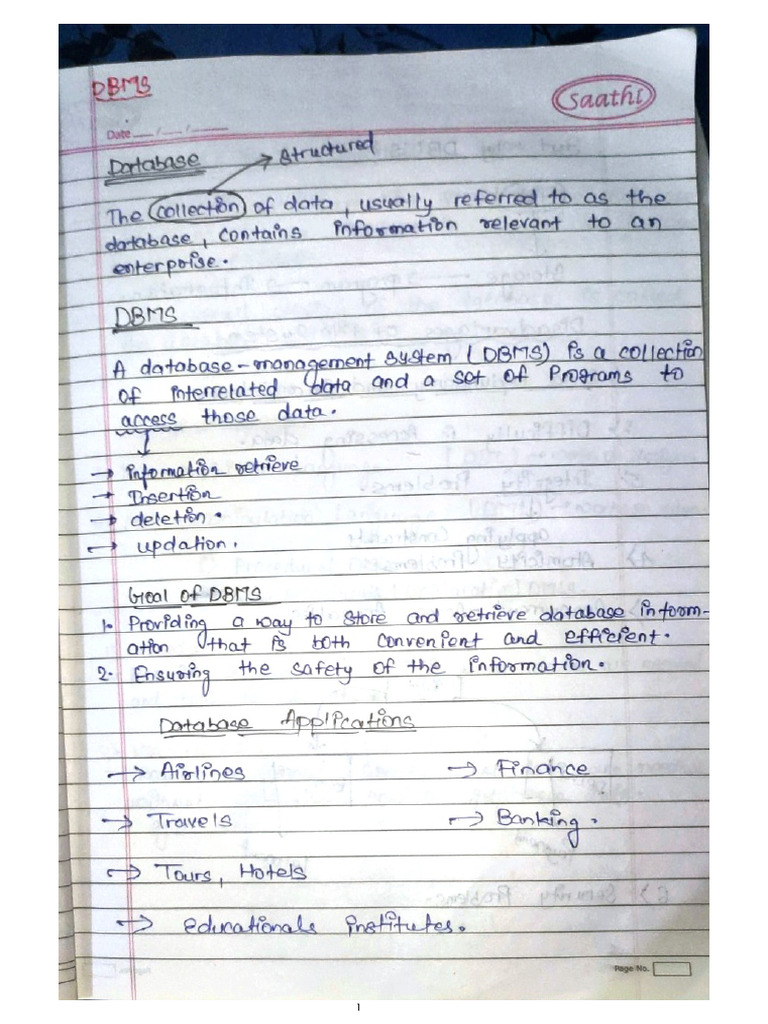 DBMS
Saathi
Date __/__/__
Database → Structured
The collection of data, usually referred to as the
database, contains information relevant to an
enterprise.
DBMS
A database-management system (DBMS) is a collection
of interrelated data and a set of Programs to
access those data.
→ information retrieve
→ Insertion
→ deletion.
→ updation.
Goal of DBMS
1. Providing a way to store and retrieve database inform-
ation that is both convenient and efficient.
2. Ensuring the safety of the information.
Database Applications
→ Airlines → Finance
→ Travels → Banking.
→ Tours, Hotels
→ Educationals institutes.
Page No.
1